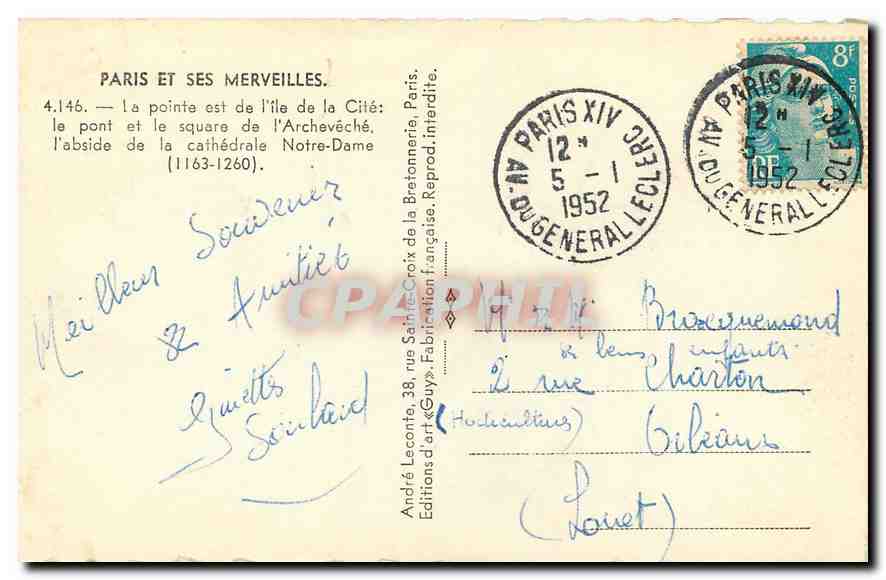 PARIS ET SES MERVEILLES.
4.146. — La pointe est de l'île de la Cité:
le pont et le square de l'Archevêché,
l'abside de la cathédrale Notre-Dame
(1163-1260).
Meilleur Souvenir
& Amitié
Ginette
André Leconte, 38, rue Sainte-Croix de la Bretonnerie, Paris.
Editions d'art «Guy». Fabrication française. Reprod. interdite.
PARIS XIV
12H
5 - 1
1952
AV. DU GENERAL LECLERC
8F
POS
RF
PARIS XIV
12H
5 - 1
1952
AV. DU GENERAL LECLERC
CPAPHIL
M & M
& leurs enfants
2 rue Charton
(Horticulteurs) Orléans
(Loiret)